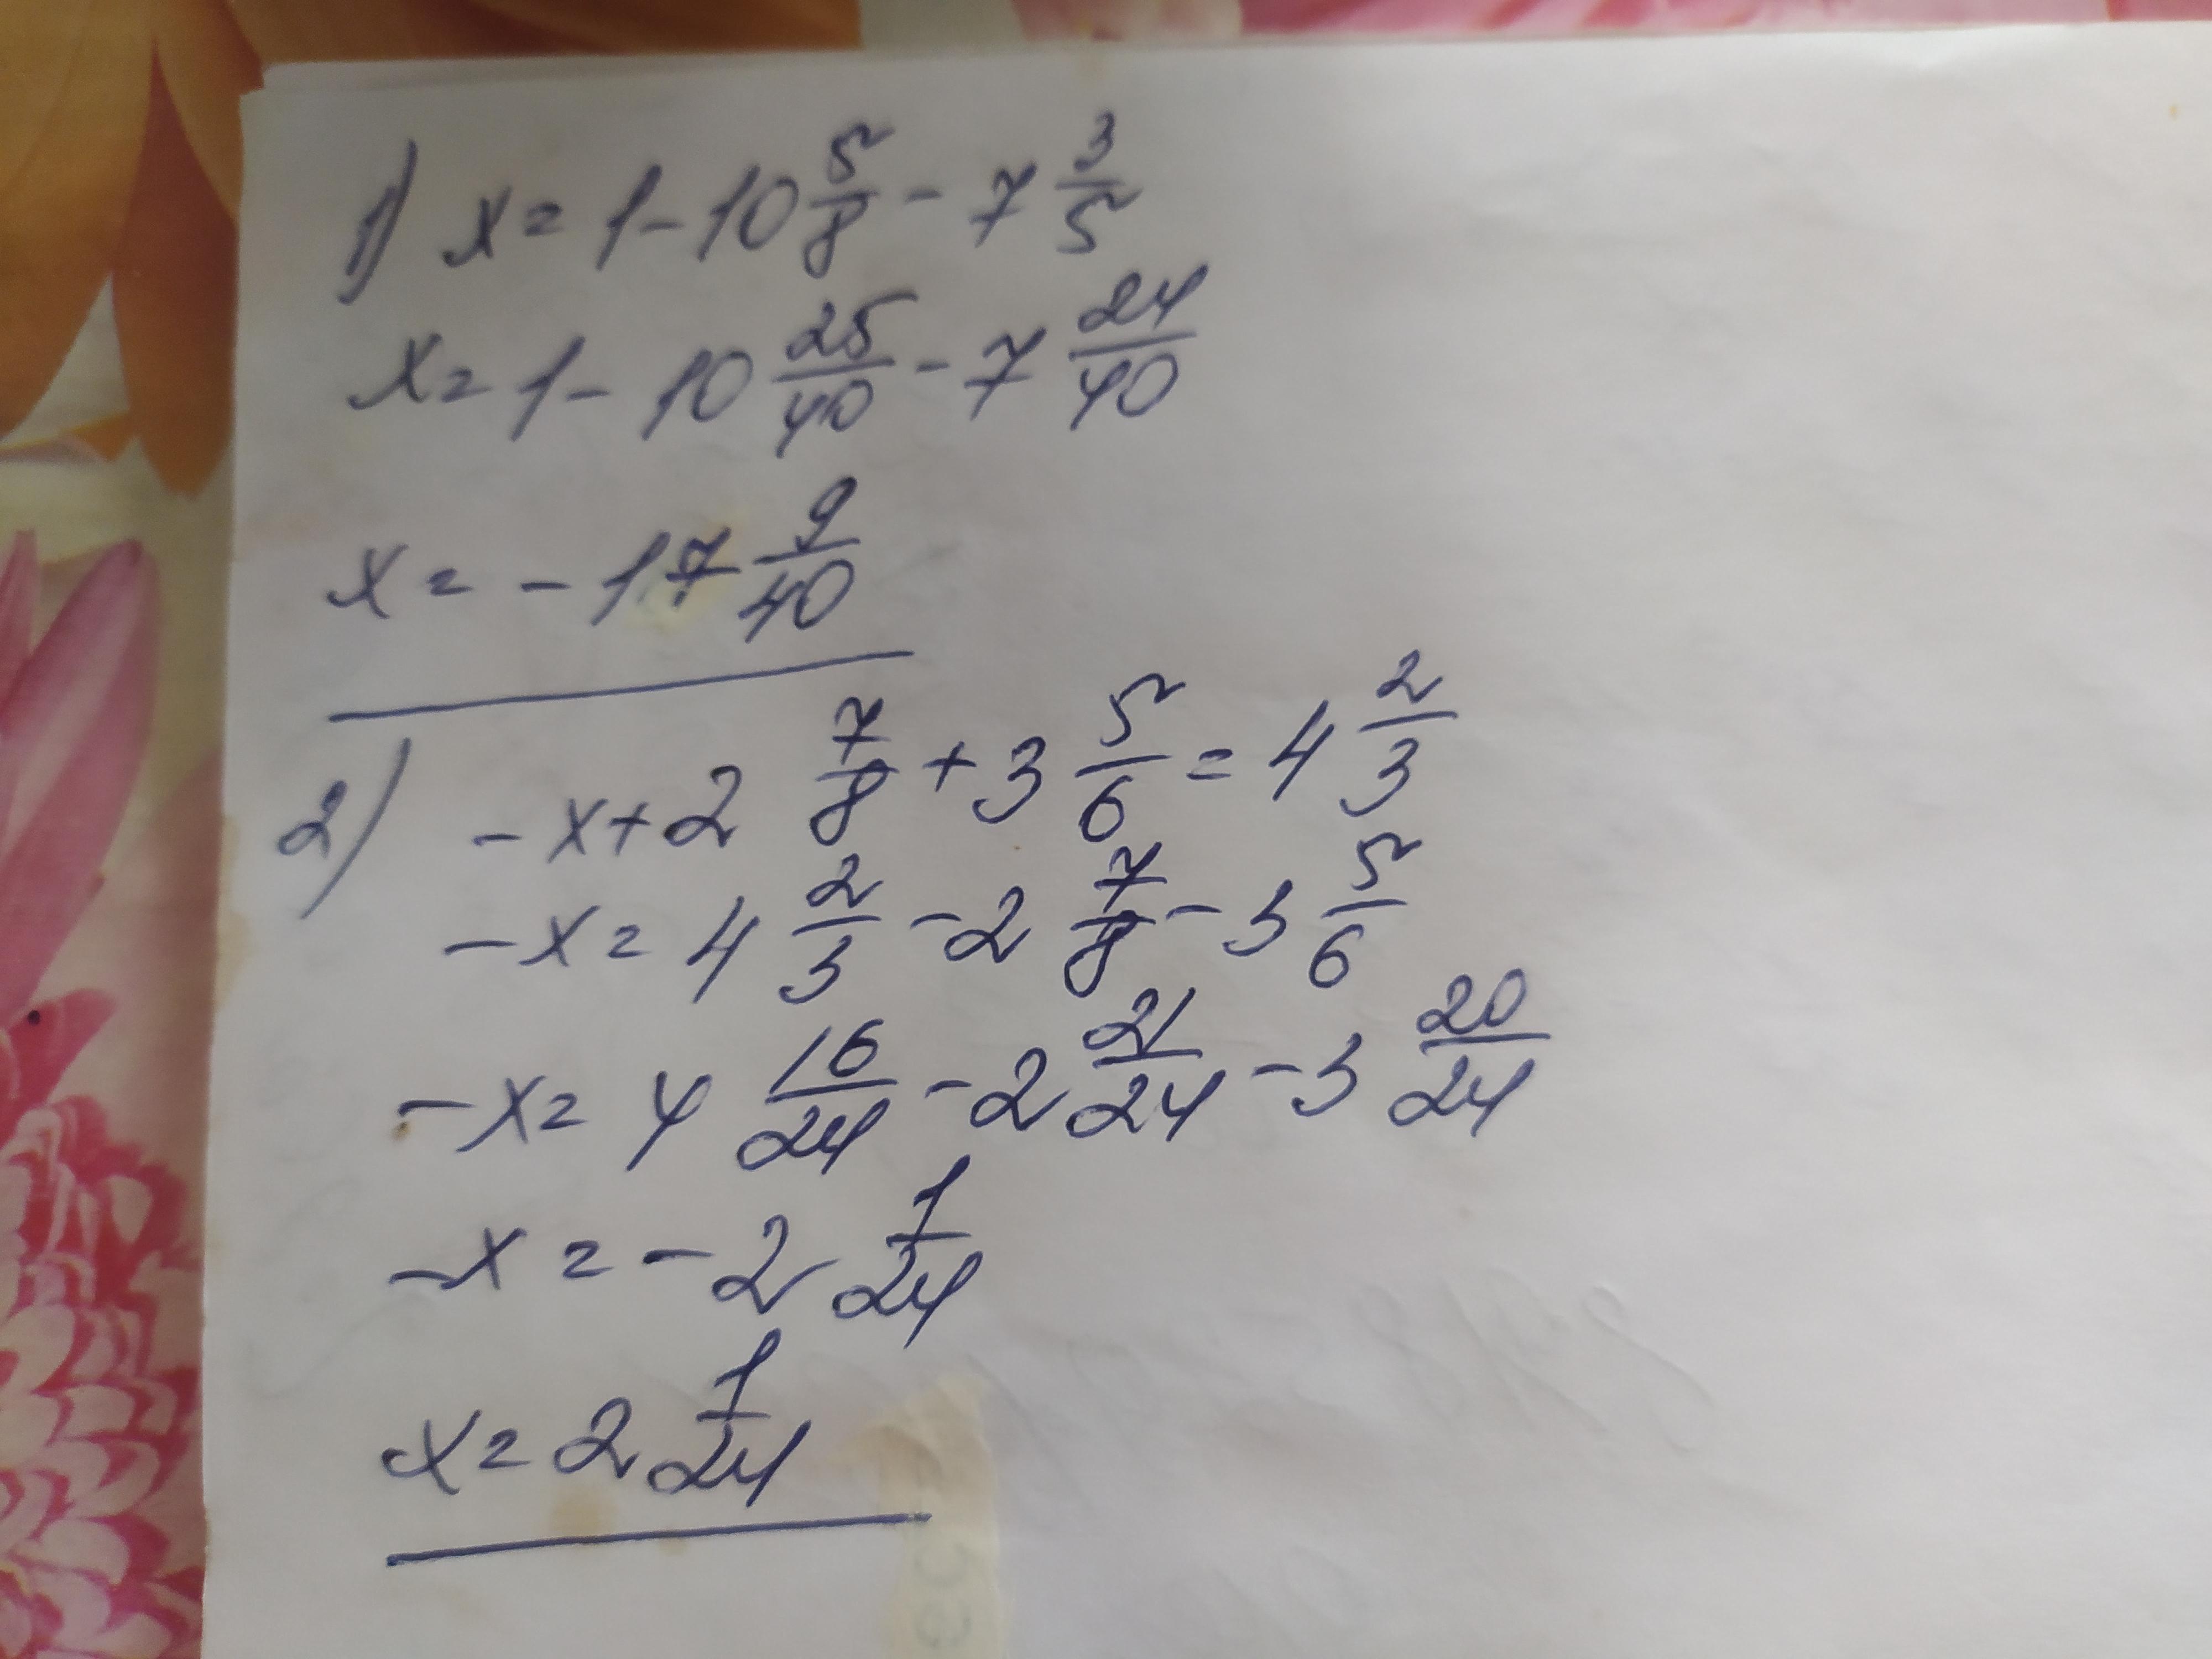 1) x = 1 - 10 5/8 - 7 3/5
x = 1 - 10 25/40 - 7 24/40
x = - 17 9/40
2) - x + 2 7/8 + 3 5/6 = 4 2/3
- x = 4 2/3 - 2 7/8 - 3 5/6
- x = 4 16/24 - 2 21/24 - 3 20/24
- x = - 2 1/24
x = 2 1/24